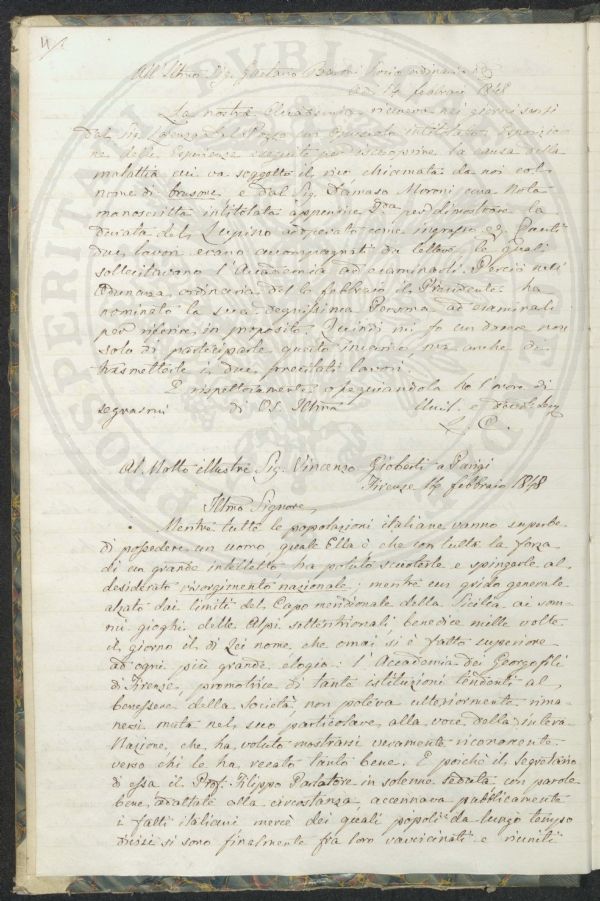 All' Illmo Sig. Gaetano Baroni Socio ordinario
14 febbraio 1848
La nostra Accademia riceveva nei giorni scorsi
dal Sig. Lorenzo Del Pozzo un intitolato Esposizio-
ne delle Esperienze eseguite per iscoprire la causa della
malattia cui va soggetto il riso chiamata da noi col
nome di brusone; e dal Sig. Damaso Moroni una Nota
manoscritta intitolata appendice 2da per dimostrare la
durata del Lupino adoperato come ingrasso. Questi
due lavori erano accompagnati da lettere, le quali
sollecitavano l'Accademia ad esaminarli. Perciò nell'
Adunanza ordinaria del 6 febbraio il Presidente ha
nominato la sua degnissima Persona ad esaminarli
per riferire in proposito. Quindi mi fo un dovere non
solo di parteciparle questo incarico, ma anche di
trasmetterle i due precitati lavori.
E rispettosamente ossequiandola ho l'onore di
segnarmi di VS. Illma Umil. e Devot. Serv.
L. C.
Al Molto illustre Sig. Vincenzo Gioberti a Parigi
Firenze 14 febbraio 1848
Illmo Signore,
Mentre tutte le popolazioni italiane vanno superbe
di possedere un uomo quale Ella è che con tutta la forza
di un grande intelletto ha potuto scuoterle e spingerle al
desiderato risorgimento nazionale; mentre un grido generale
alzato dai limiti del Capo meridionale della Sicilia ai som-
mi gioghi delle Alpi settentrionali, benedice mille volte
il giorno il di Lei nome, che omai si è fatto superiore
ad ogni più grande elogio: l'Accademia dei Georgofili
di Firenze, promotrice di tante istituzioni tendenti al
benessere della Società non poteva ulteriormente rima-
nersi muta nel suo particolare alla voce della intera
Nazione, che ha voluto mostrarsi veramente riconoscente
verso chi le ha recato tanto bene. E poichè il Segretario
di essa il Prof. Filippo Parlatore in solenne seduta con parole
bene adattate alla circostanza, accennava pubblicamente
i fatti italiani mercè dei quali popoli da lungo tempo
divisi si sono finalmente fra loro ravvicinati e riuniti